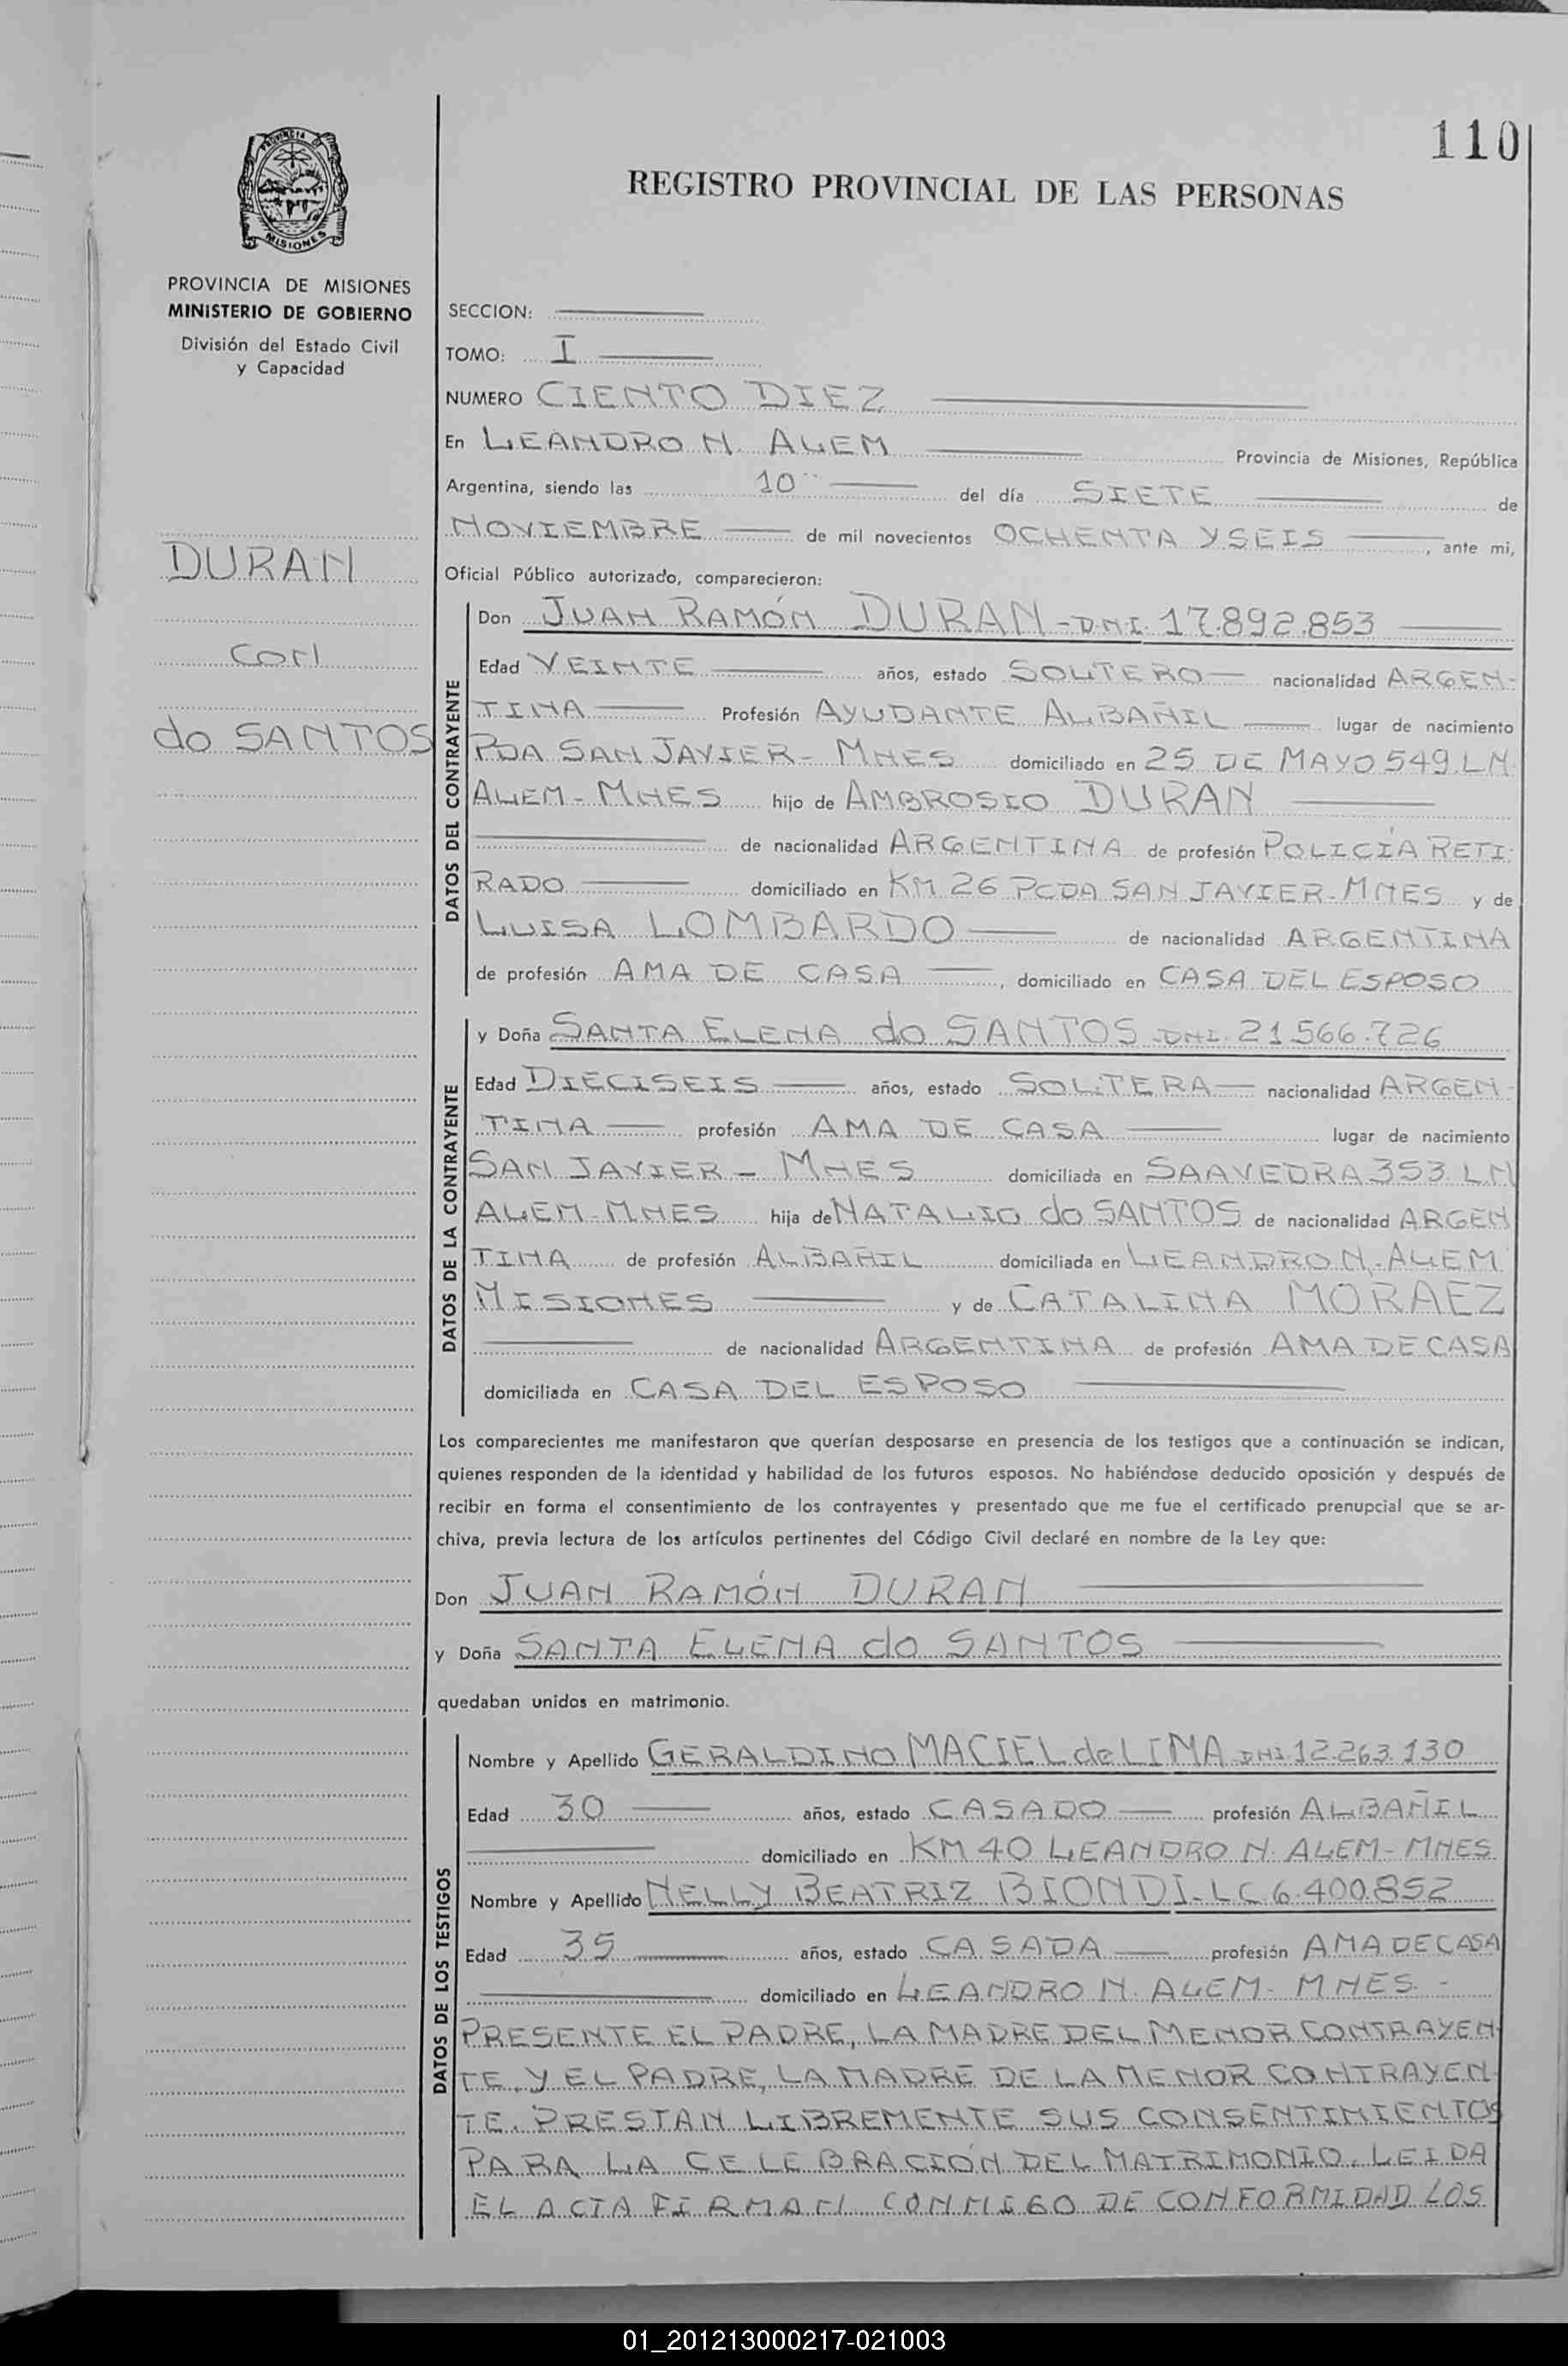 110
REGISTRO PROVINCIAL DE LAS PERSONAS
PROVINCIA DE MISIONES
MINISTERIO DE GOBIERNO
División del Estado Civil
y Capacidad
DURAN
con
do SANTOS
SECCION:
TOMO: I
NUMERO CIENTO DIEZ
En LEANDRO N. ALEM Provincia de Misiones, República
Argentina, siendo las 10 del día SIETE de
NOVIEMBRE de mil novecientos OCHENTA Y SEIS, ante mi,
Oficial Público autorizado, comparecieron:
DATOS DEL CONTRAYENTE
Don JUAN RAMÓN DURAN - DNI. 17.892.853
Edad VEINTE años, estado SOLTERO nacionalidad ARGEN-
TINA Profesión AYUDANTE ALBAÑIL lugar de nacimiento
PDA SAN JAVIER - MNES domiciliado en 25 DE MAYO 549 L.N.
ALEM - MNES hijo de AMBROSIO DURAN
de nacionalidad ARGENTINA de profesión POLICÍA RETI-
RADO domiciliado en KM 26 PCDA SAN JAVIER - MNES y de
LUISA LOMBARDO de nacionalidad ARGENTINA
de profesión AMA DE CASA, domiciliado en CASA DEL ESPOSO
DATOS DE LA CONTRAYENTE
y Doña SANTA ELENA do SANTOS - DNI. 21.566.726
Edad DIECISEIS años, estado SOLTERA nacionalidad ARGEN-
TINA profesión AMA DE CASA lugar de nacimiento
SAN JAVIER - MNES domiciliada en SAAVEDRA 353 L.N
ALEM - MNES hija de NATALIO do SANTOS de nacionalidad ARGEN
TINA de profesión ALBAÑIL domiciliada en LEANDRO N. ALEM
MISIONES y de CATALINA MORAEZ
de nacionalidad ARGENTINA de profesión AMA DE CASA
domiciliada en CASA DEL ESPOSO
Los comparecientes me manifestaron que querían desposarse en presencia de los testigos que a continuación se indican,
quienes responden de la identidad y habilidad de los futuros esposos. No habiéndose deducido oposición y después de
recibir en forma el consentimiento de los contrayentes y presentado que me fue el certificado prenupcial que se ar-
chiva, previa lectura de los artículos pertinentes del Código Civil declaré en nombre de la Ley que:
Don JUAN RAMÓN DURAN
y Doña SANTA ELENA do SANTOS
quedaban unidos en matrimonio.
DATOS DE LOS TESTIGOS
Nombre y Apellido GERALDINO MACIEL de LIMA DNI. 12.263.130
Edad 30 años, estado CASADO profesión ALBAÑIL
domiciliado en KM 40 LEANDRO N. ALEM - MNES
Nombre y Apellido NELLY BEATRIZ BIONDI - LC 6.400.852
Edad 35 años, estado CASADA profesión AMA DE CASA
domiciliado en LEANDRO N. ALEM - MNES -
PRESENTE EL PADRE, LA MADRE DEL MENOR CONTRAYEN-
TE, Y EL PADRE, LA MADRE DE LA MENOR CONTRAYEN-
TE. PRESTAN LIBREMENTE SUS CONSENTIMIENTOS
PARA LA CELEBRACIÓN DEL MATRIMONIO. LEIDA
EL ACTA FIRMAN CONMIGO DE CONFORMIDAD LOS
01_201213000217-021003